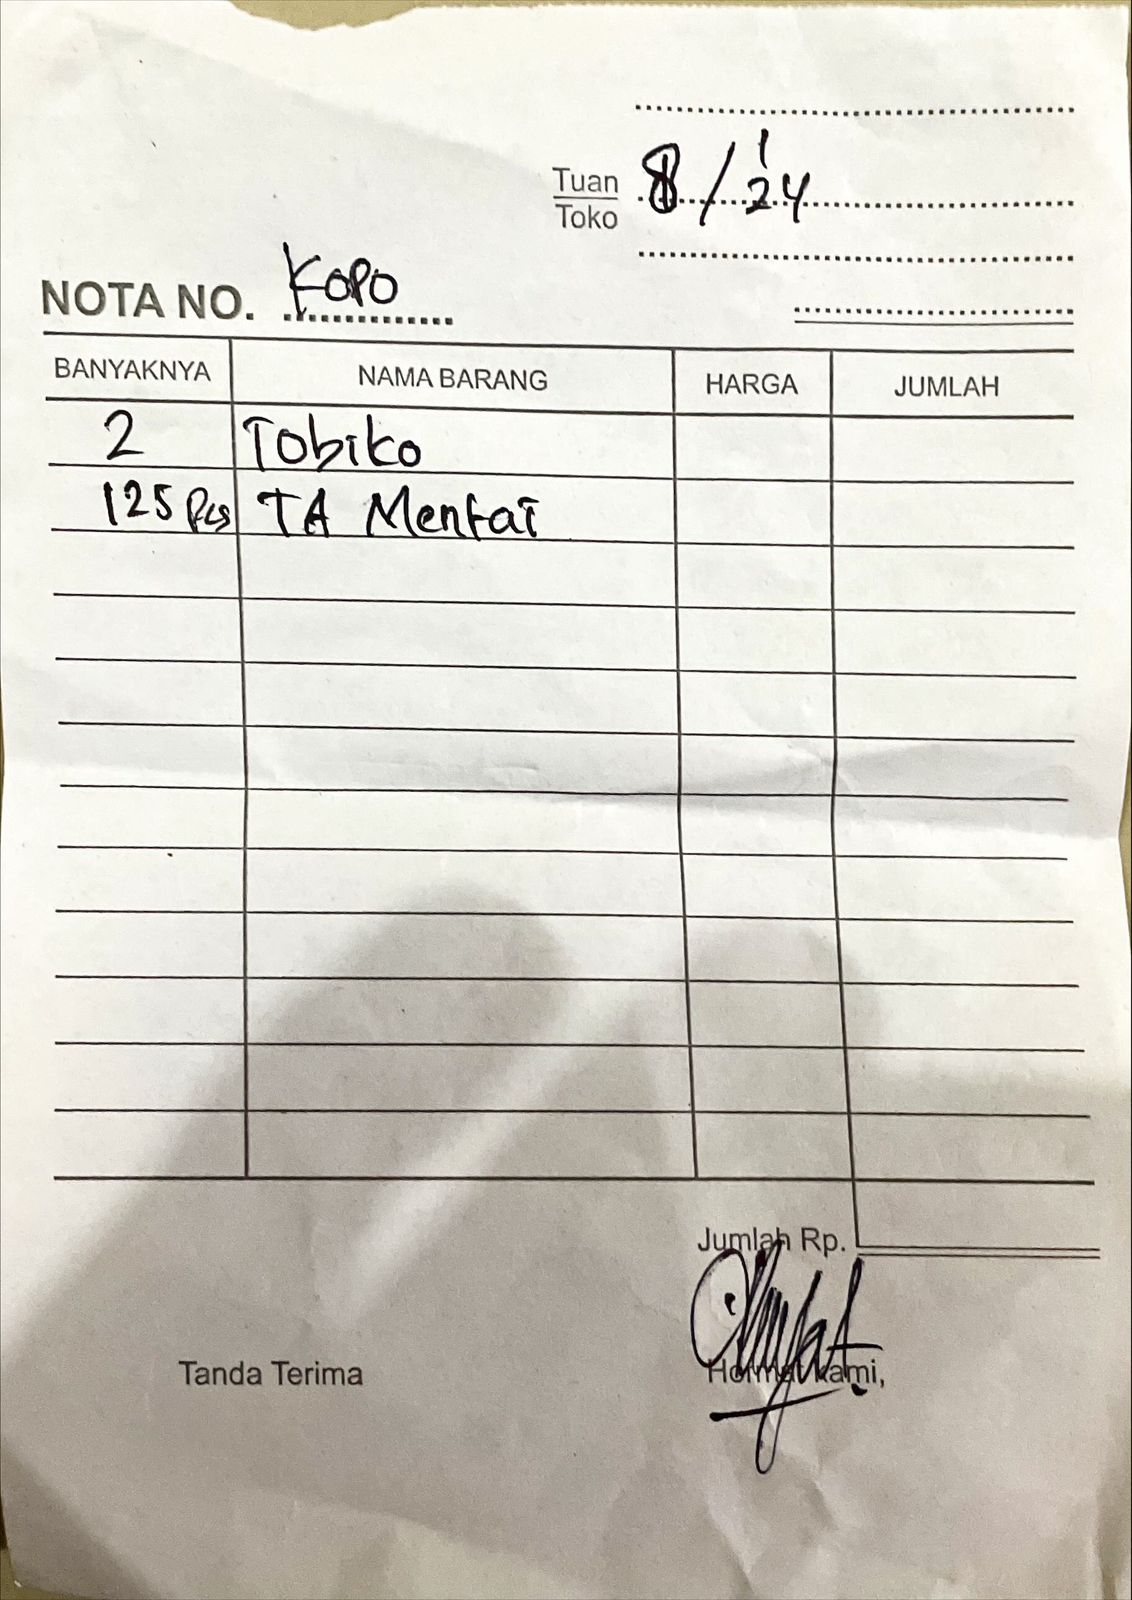 Tuan
Toko
8/1 24
NOTA NO. KOPO
BANYAKNYA NAMA BARANG HARGA JUMLAH
2 Tobiko
125 Pcs TA Mentai
Jumlah Rp.
Tanda Terima Hormat kami,